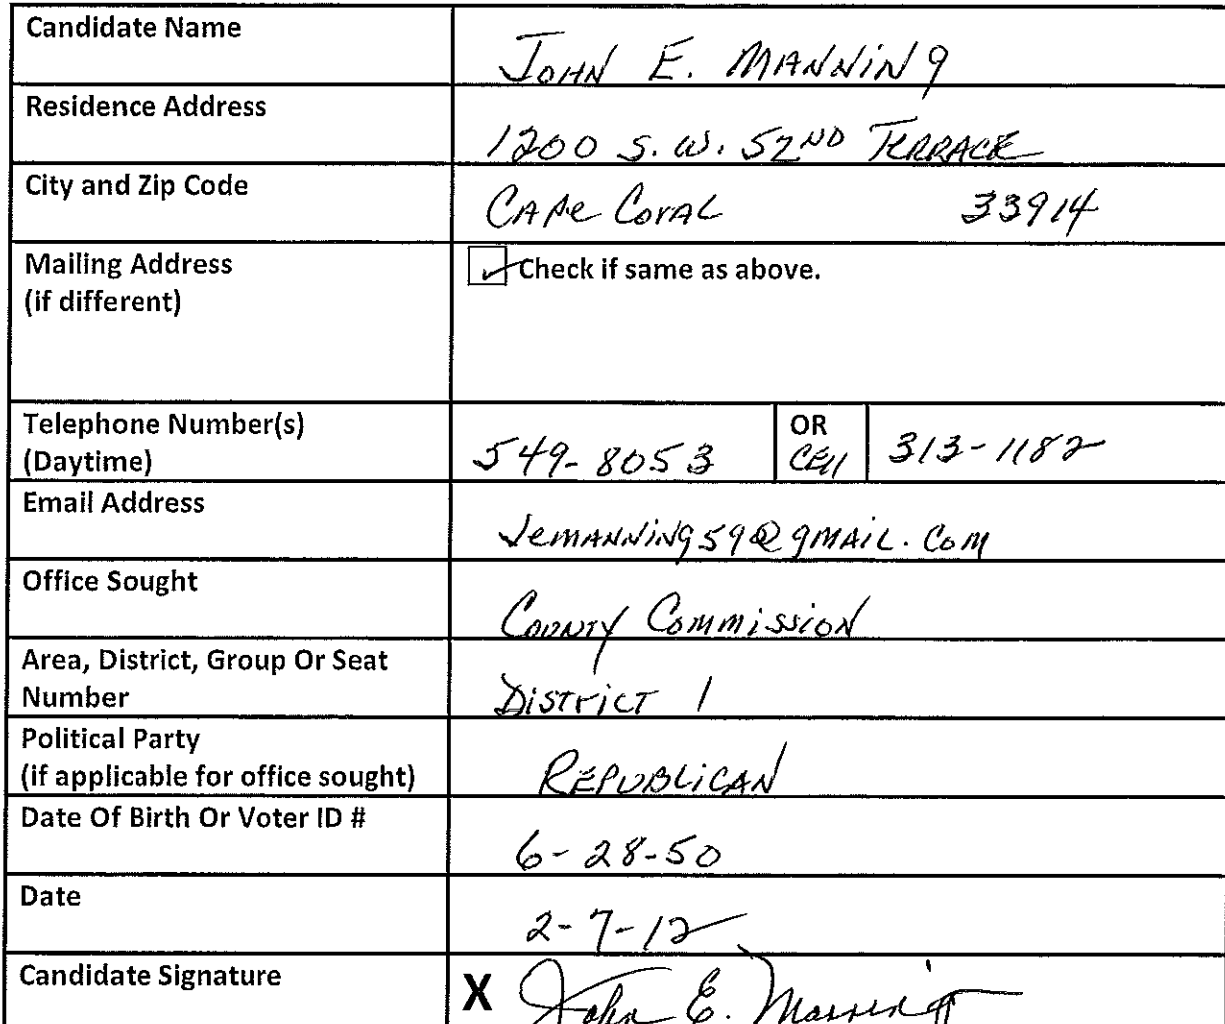 Candidate Name JOHN E. MANNING
Residence Address 1200 S.W. 52ND TERRACE
City and Zip Code CAPE CORAL 33914
Mailing Address ✓ Check if same as above.
(if different)
Telephone Number(s) OR
(Daytime) 549-8053 CELL 313-1182
Email Address Jemanning59@gmail.com
Office Sought County Commission
Area, District, Group Or Seat
Number District 1
Political Party
(if applicable for office sought) REPUBLICAN
Date Of Birth Or Voter ID # 6-28-50
Date 2-7-12
Candidate Signature X John E. Manning